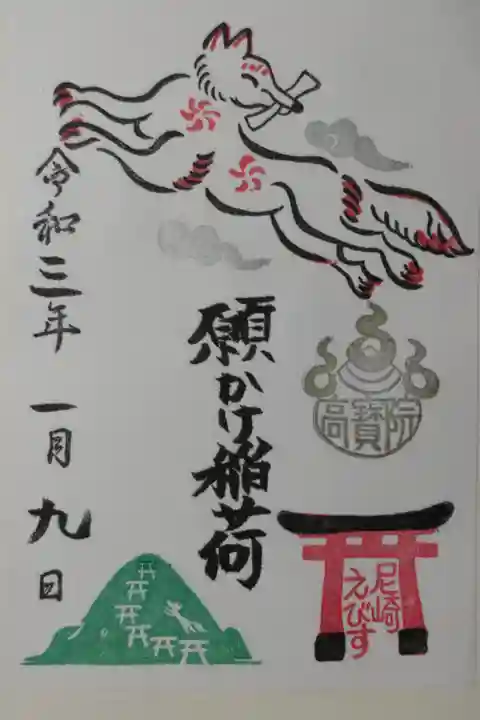 願かけ稲荷
令和三年 一月九日
高寳院
尼崎
えびす